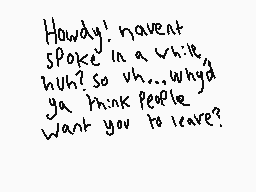 Howdy! havent
spoke in a while,
huh? so uh... why'd
ya think people
want you to leave?